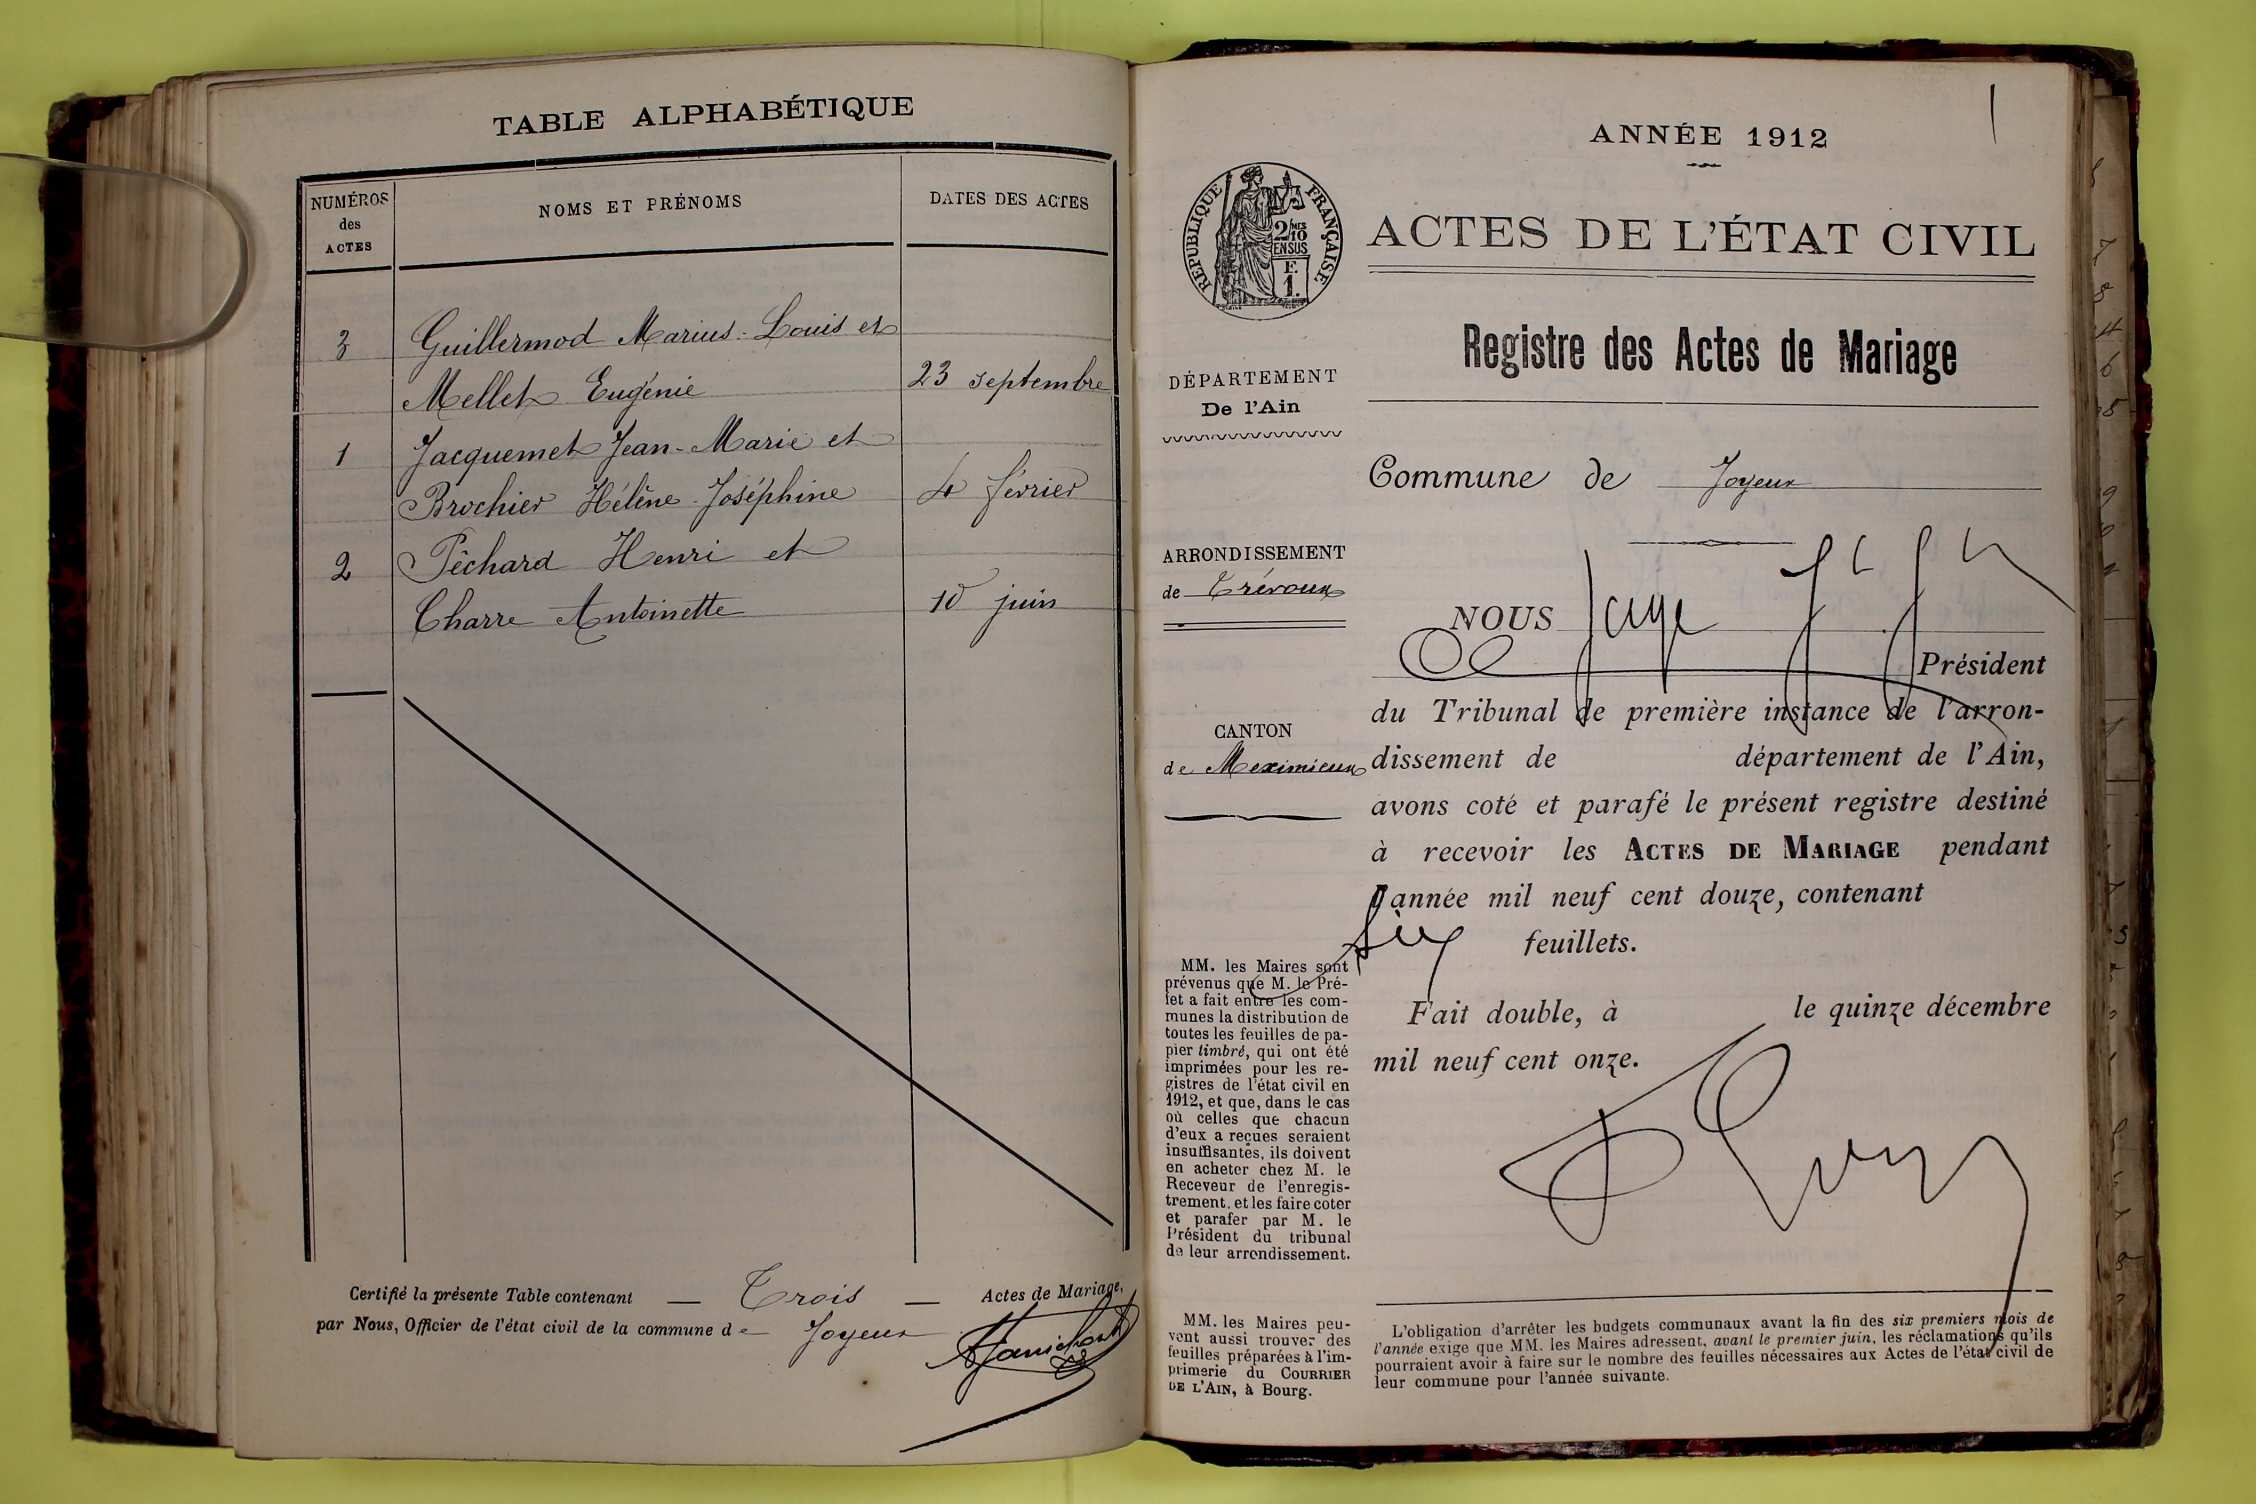 TABLE ALPHABÉTIQUE
NUMÉROS
des
ACTES
NOMS ET PRÉNOMS
DATES DES ACTES
3 Guillermod Marius-Louis et
Mellet Eugénie 23 septembre
1 Jacquemet Jean-Marie et
Brochier Hélène-Joséphine 4 février
2 Pêchard Henri et
Charre Antoinette 10 juin
Certifié la présente Table contenant — Trois — Actes de Mariage,
par Nous, Officier de l'état civil de la commune de Joyeux
1
ANNÉE 1912
RÉPUBLIQUE FRANÇAISE
2/10 MES
EN SUS
F.
1.
ACTES DE L'ÉTAT CIVIL
Registre des Actes de Mariage
DÉPARTEMENT
De l'Ain
Commune de Joyeux
ARRONDISSEMENT
de Trévoux
NOUS
Président
du Tribunal de première instance de l'arron-
CANTON
de Meximieux
dissement de département de l'Ain,
avons coté et parafé le présent registre destiné
à recevoir les ACTES DE MARIAGE pendant
l'année mil neuf cent douze, contenant
six feuillets.
Fait double, à le quinze décembre
mil neuf cent onze.
MM. les Maires sont
prévenus que M. le Pré-
fet a fait entre les com-
munes la distribution de
toutes les feuilles de pa-
pier timbré, qui ont été
imprimées pour les re-
gistres de l'état civil en
1912, et que, dans le cas
où celles que chacun
d'eux a reçues seraient
insuffisantes, ils doivent
en acheter chez M. le
Receveur de l'enregis-
trement, et les faire coter
et parafer par M. le
Président du tribunal
de leur arrondissement.
MM. les Maires peu-
vent aussi trouver des
feuilles préparées à l'im-
primerie du COURRIER
DE L'AIN, à Bourg.
L'obligation d'arrêter les budgets communaux avant la fin des six premiers mois de
l'année exige que MM. les Maires adressent, avant le premier juin, les réclamations qu'ils
pourraient avoir à faire sur le nombre des feuilles nécessaires aux Actes de l'état civil de
leur commune pour l'année suivante.